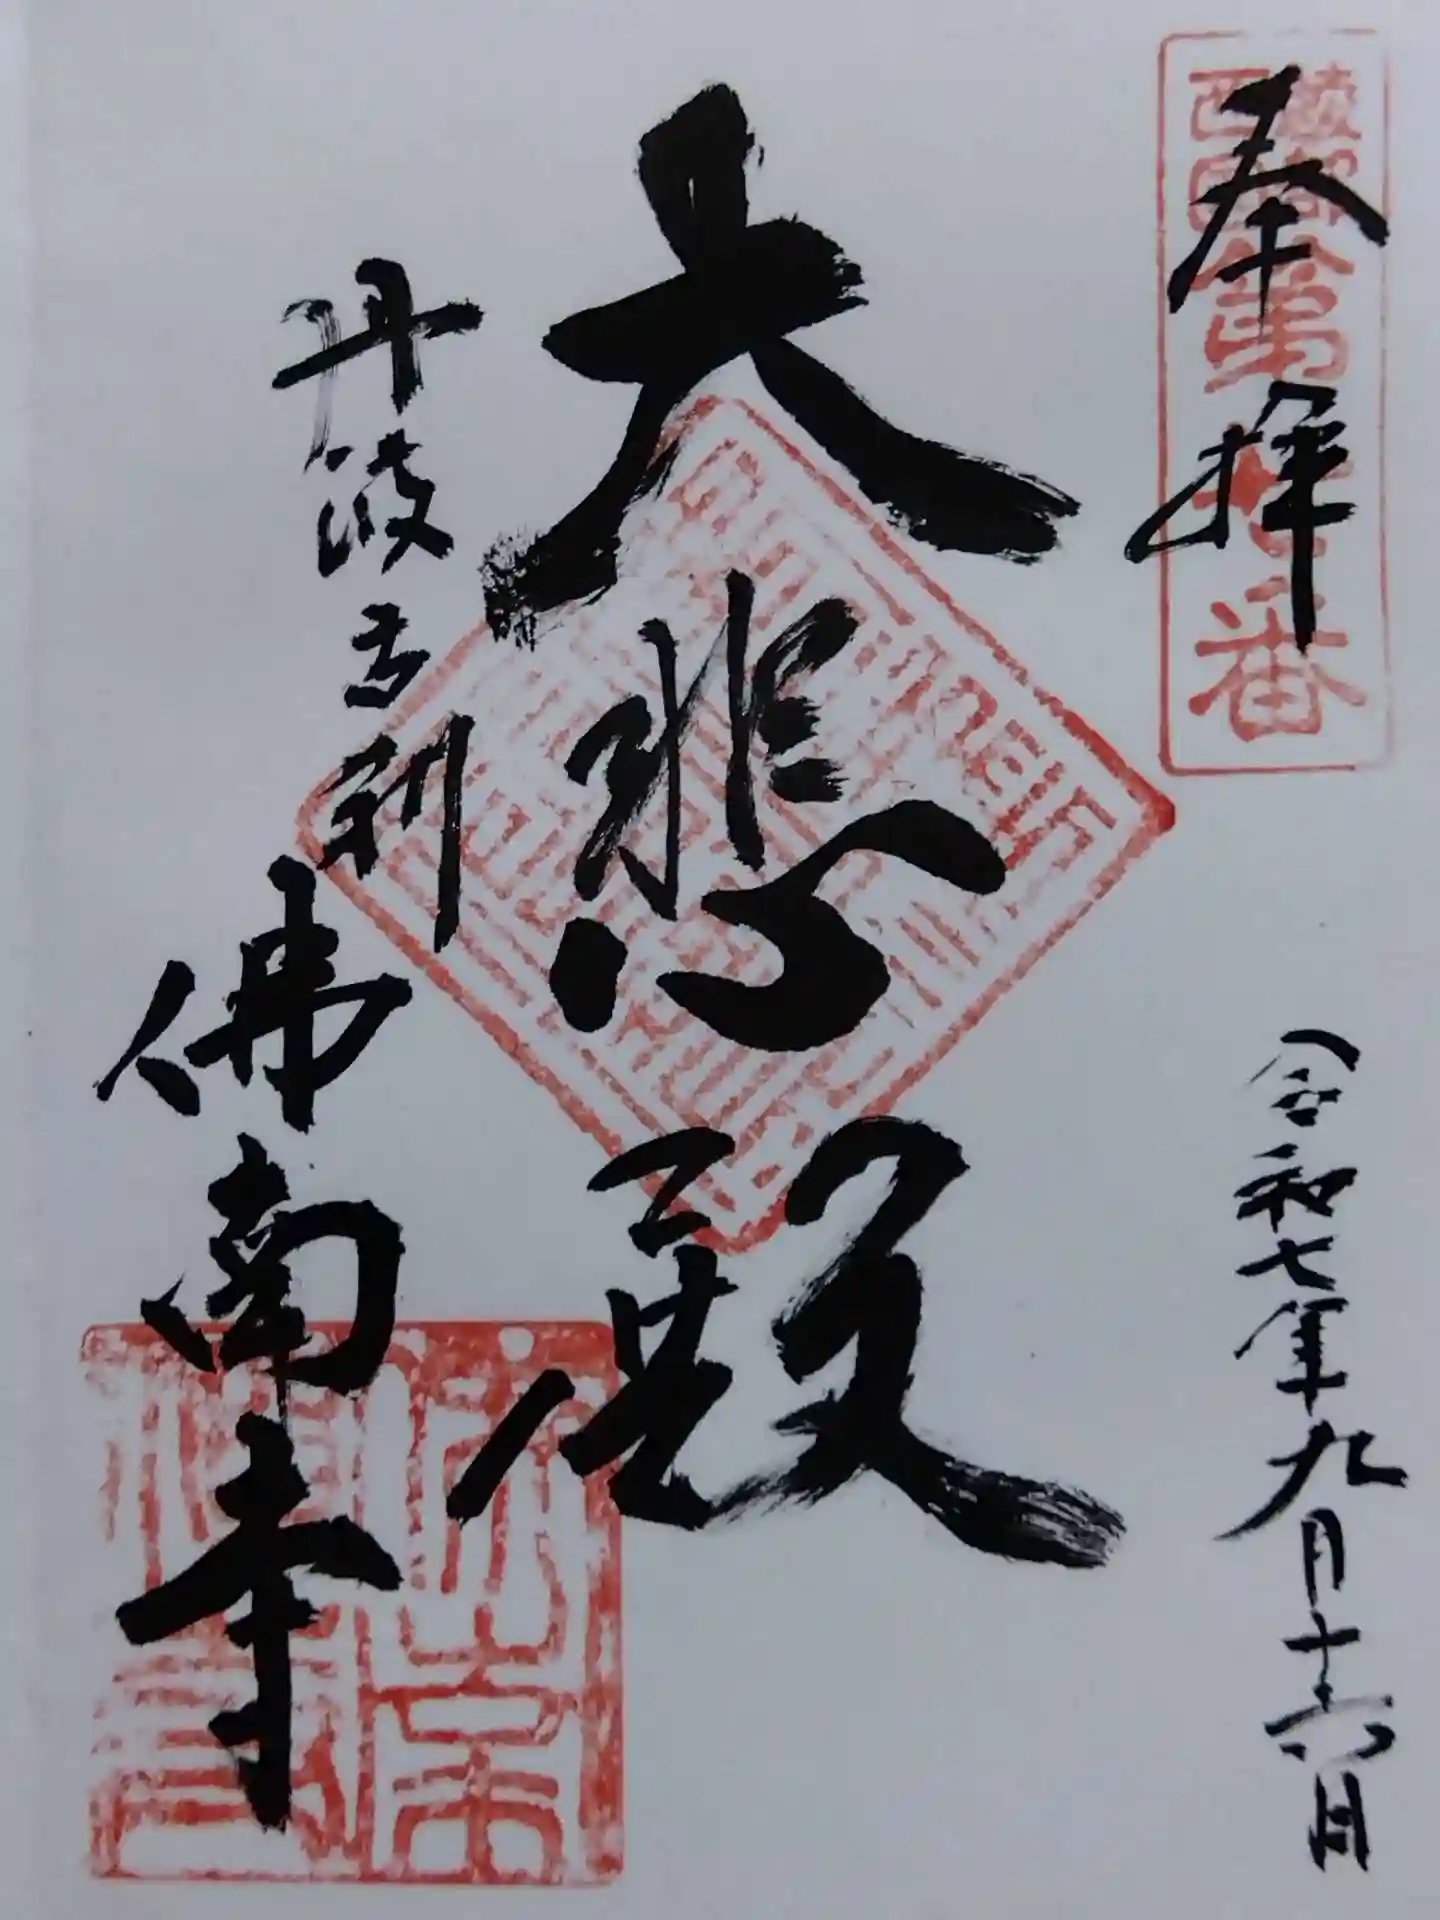 奉拝
綾部西国
令和七年九月十六日
大悲殿
丹波古刹
佛南寺